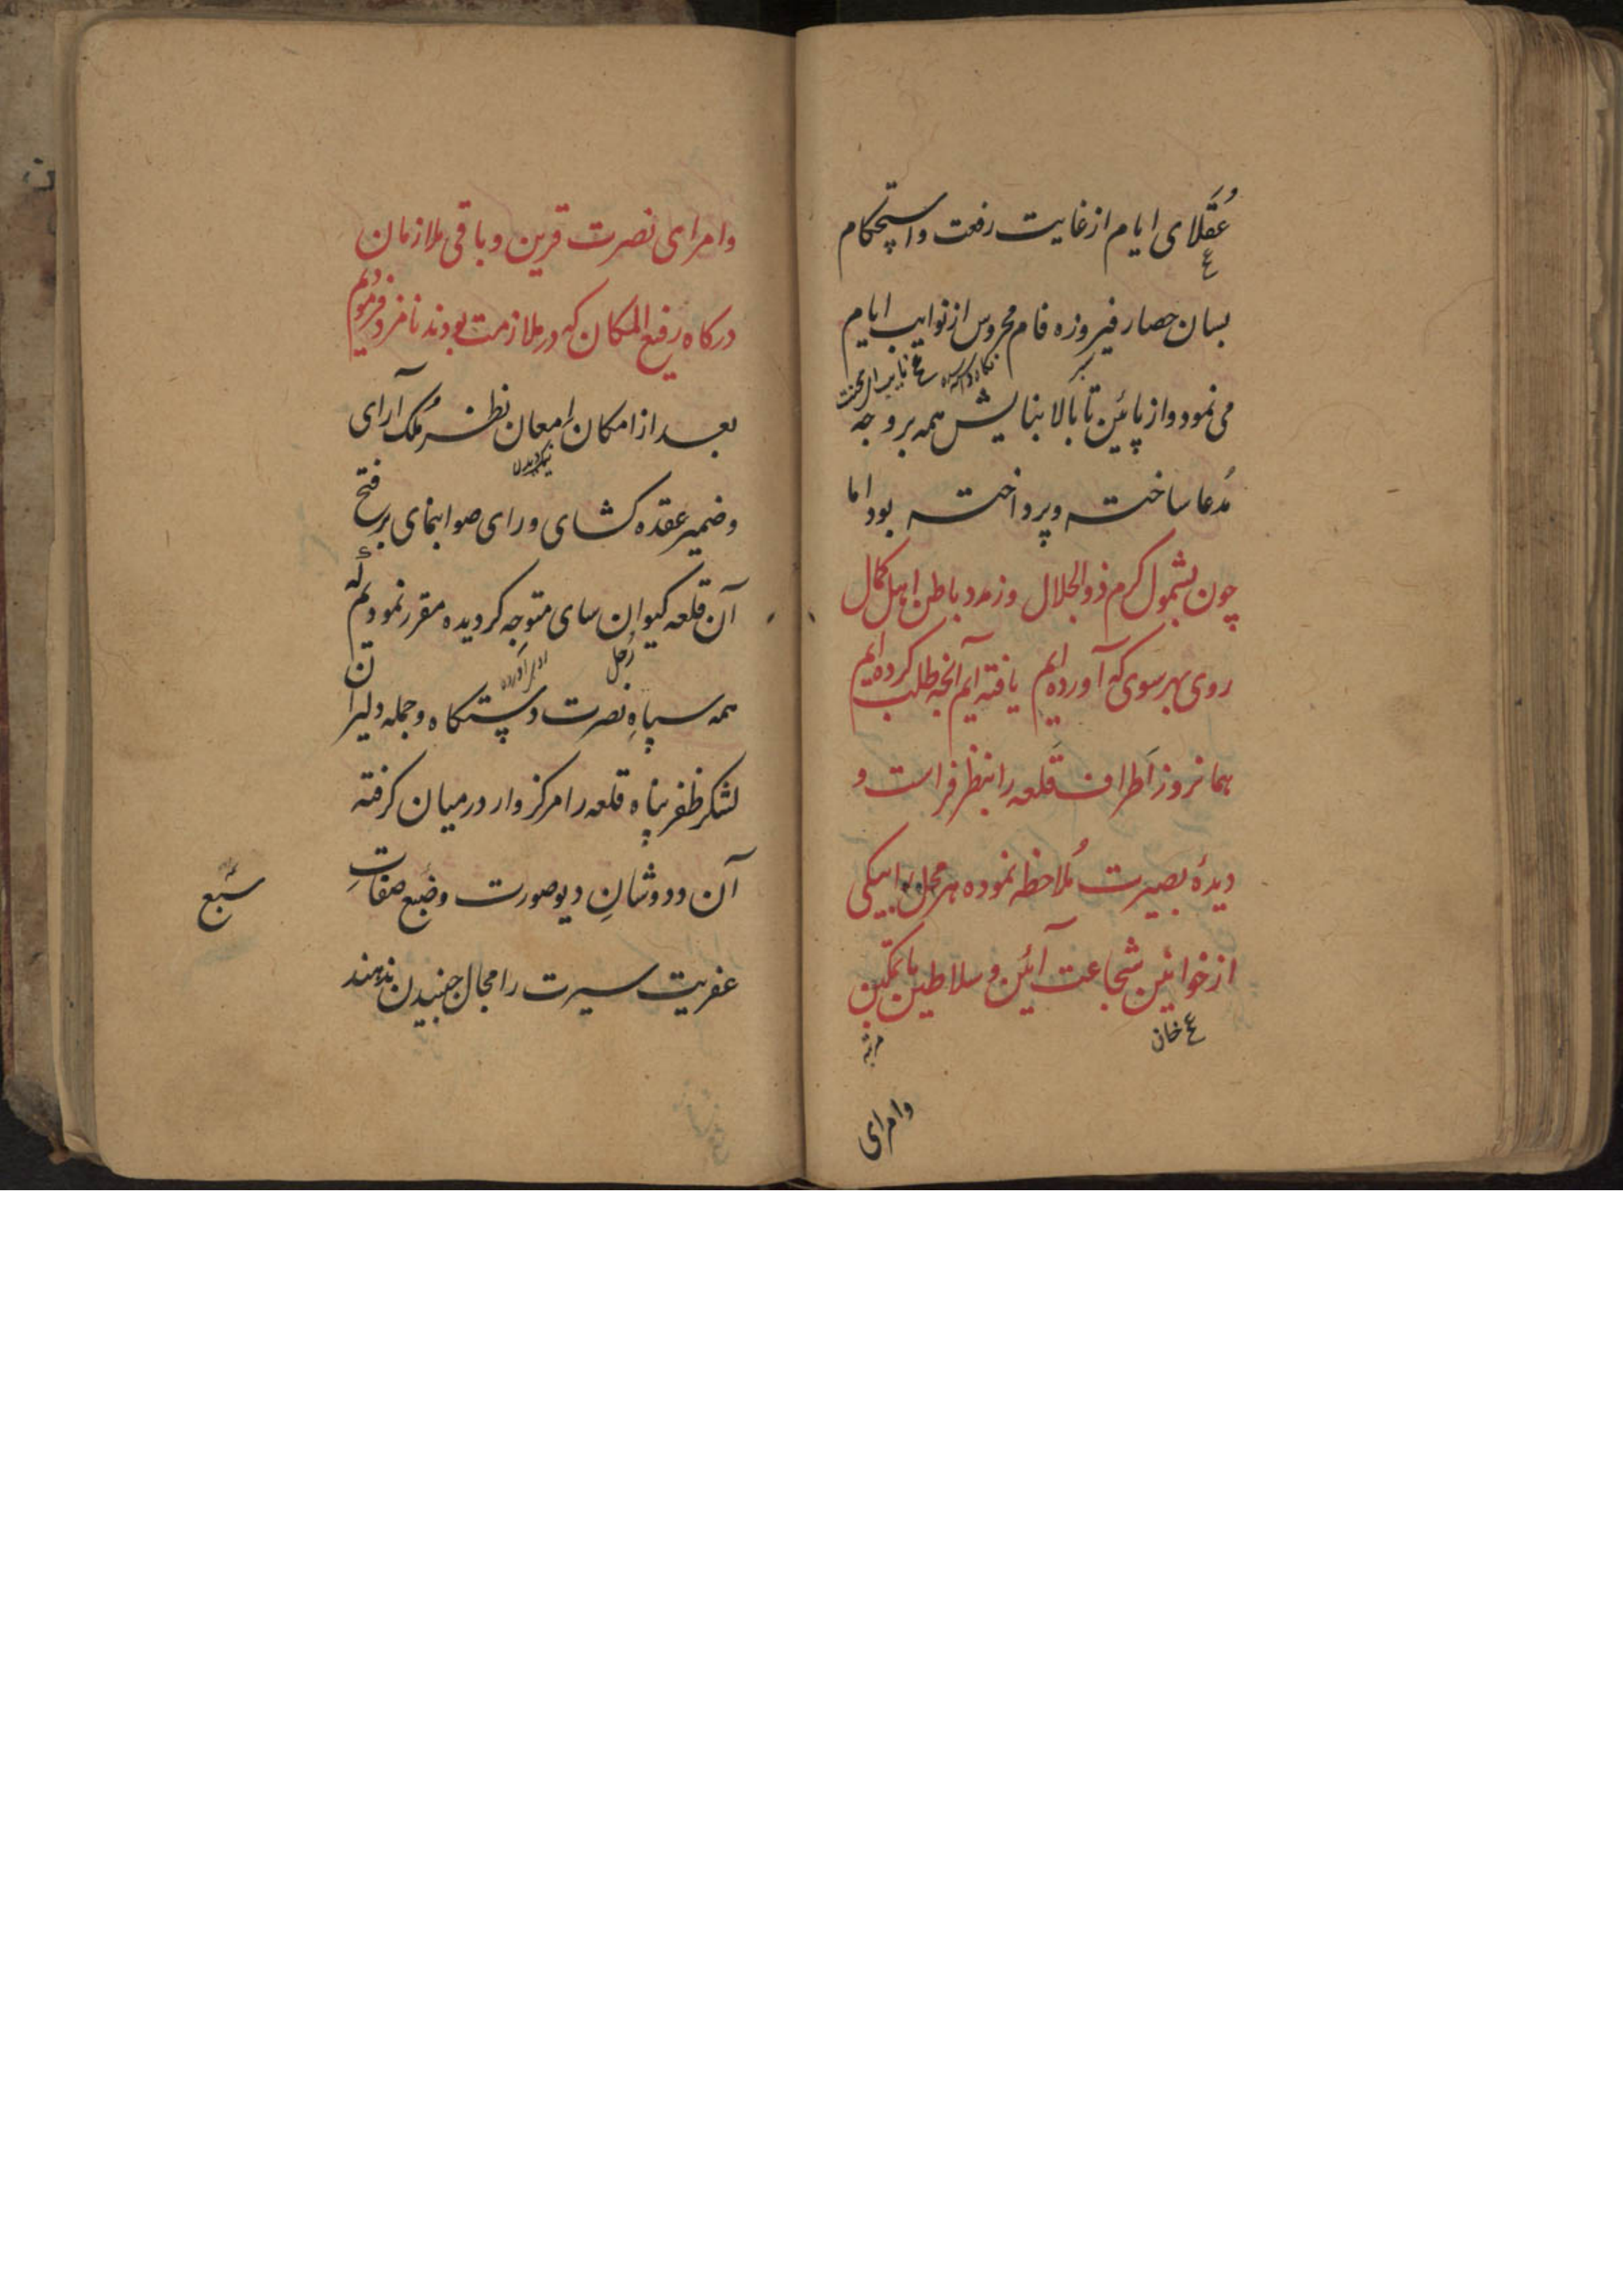 عُقَلای ایام از غایت رفعت و استحکام
ع
بسان حصار فیروزه فام محروس از نوایب ایام
نکاه داشته شده ع نایب ای محنت
می نمود و از پائین تا بالا بنایش همه بر وجه
مُدعا ساخته و پرداخته بود اما
چون بشمول کرم ذوالجلال وز مدد باطن اهل کمال
روی بهر سوی که آورده ایم یافته ایم آنچه طلب کرده ایم
همانروز اَطراف قَلعه را بنظر فراست و
دیدهٔ بصیرت مُلاحظه نموده هر محل را بیکی
از خوانین شجاعت آئین و سلاطین با تمکین
ع خان
مرتبه
وامرای
وامرای نصرت قرین و باقی ملازمان
درکاه رفیع المکان که در ملازمت بودند نامزد فرمودیم
بعد از امکان اِمعان نظر مُلک آرای
نیک دیدن
و ضمیر عقده کشای و رای صوابنمای بر فتح
آن قلعه کیوان سای متوجه کردیده مقرر نمودیم که
زُحل
همه سپاهِ نصرت دستکاه و جمله دلیران
لشکر ظفر پناه قلعه را مرکز وار در میان کرفته
آن ددوشانِ دیو صورت و ضَبع صفاتِ
سَبع
عفریت سیرت را مجال جنبیدن ندهند